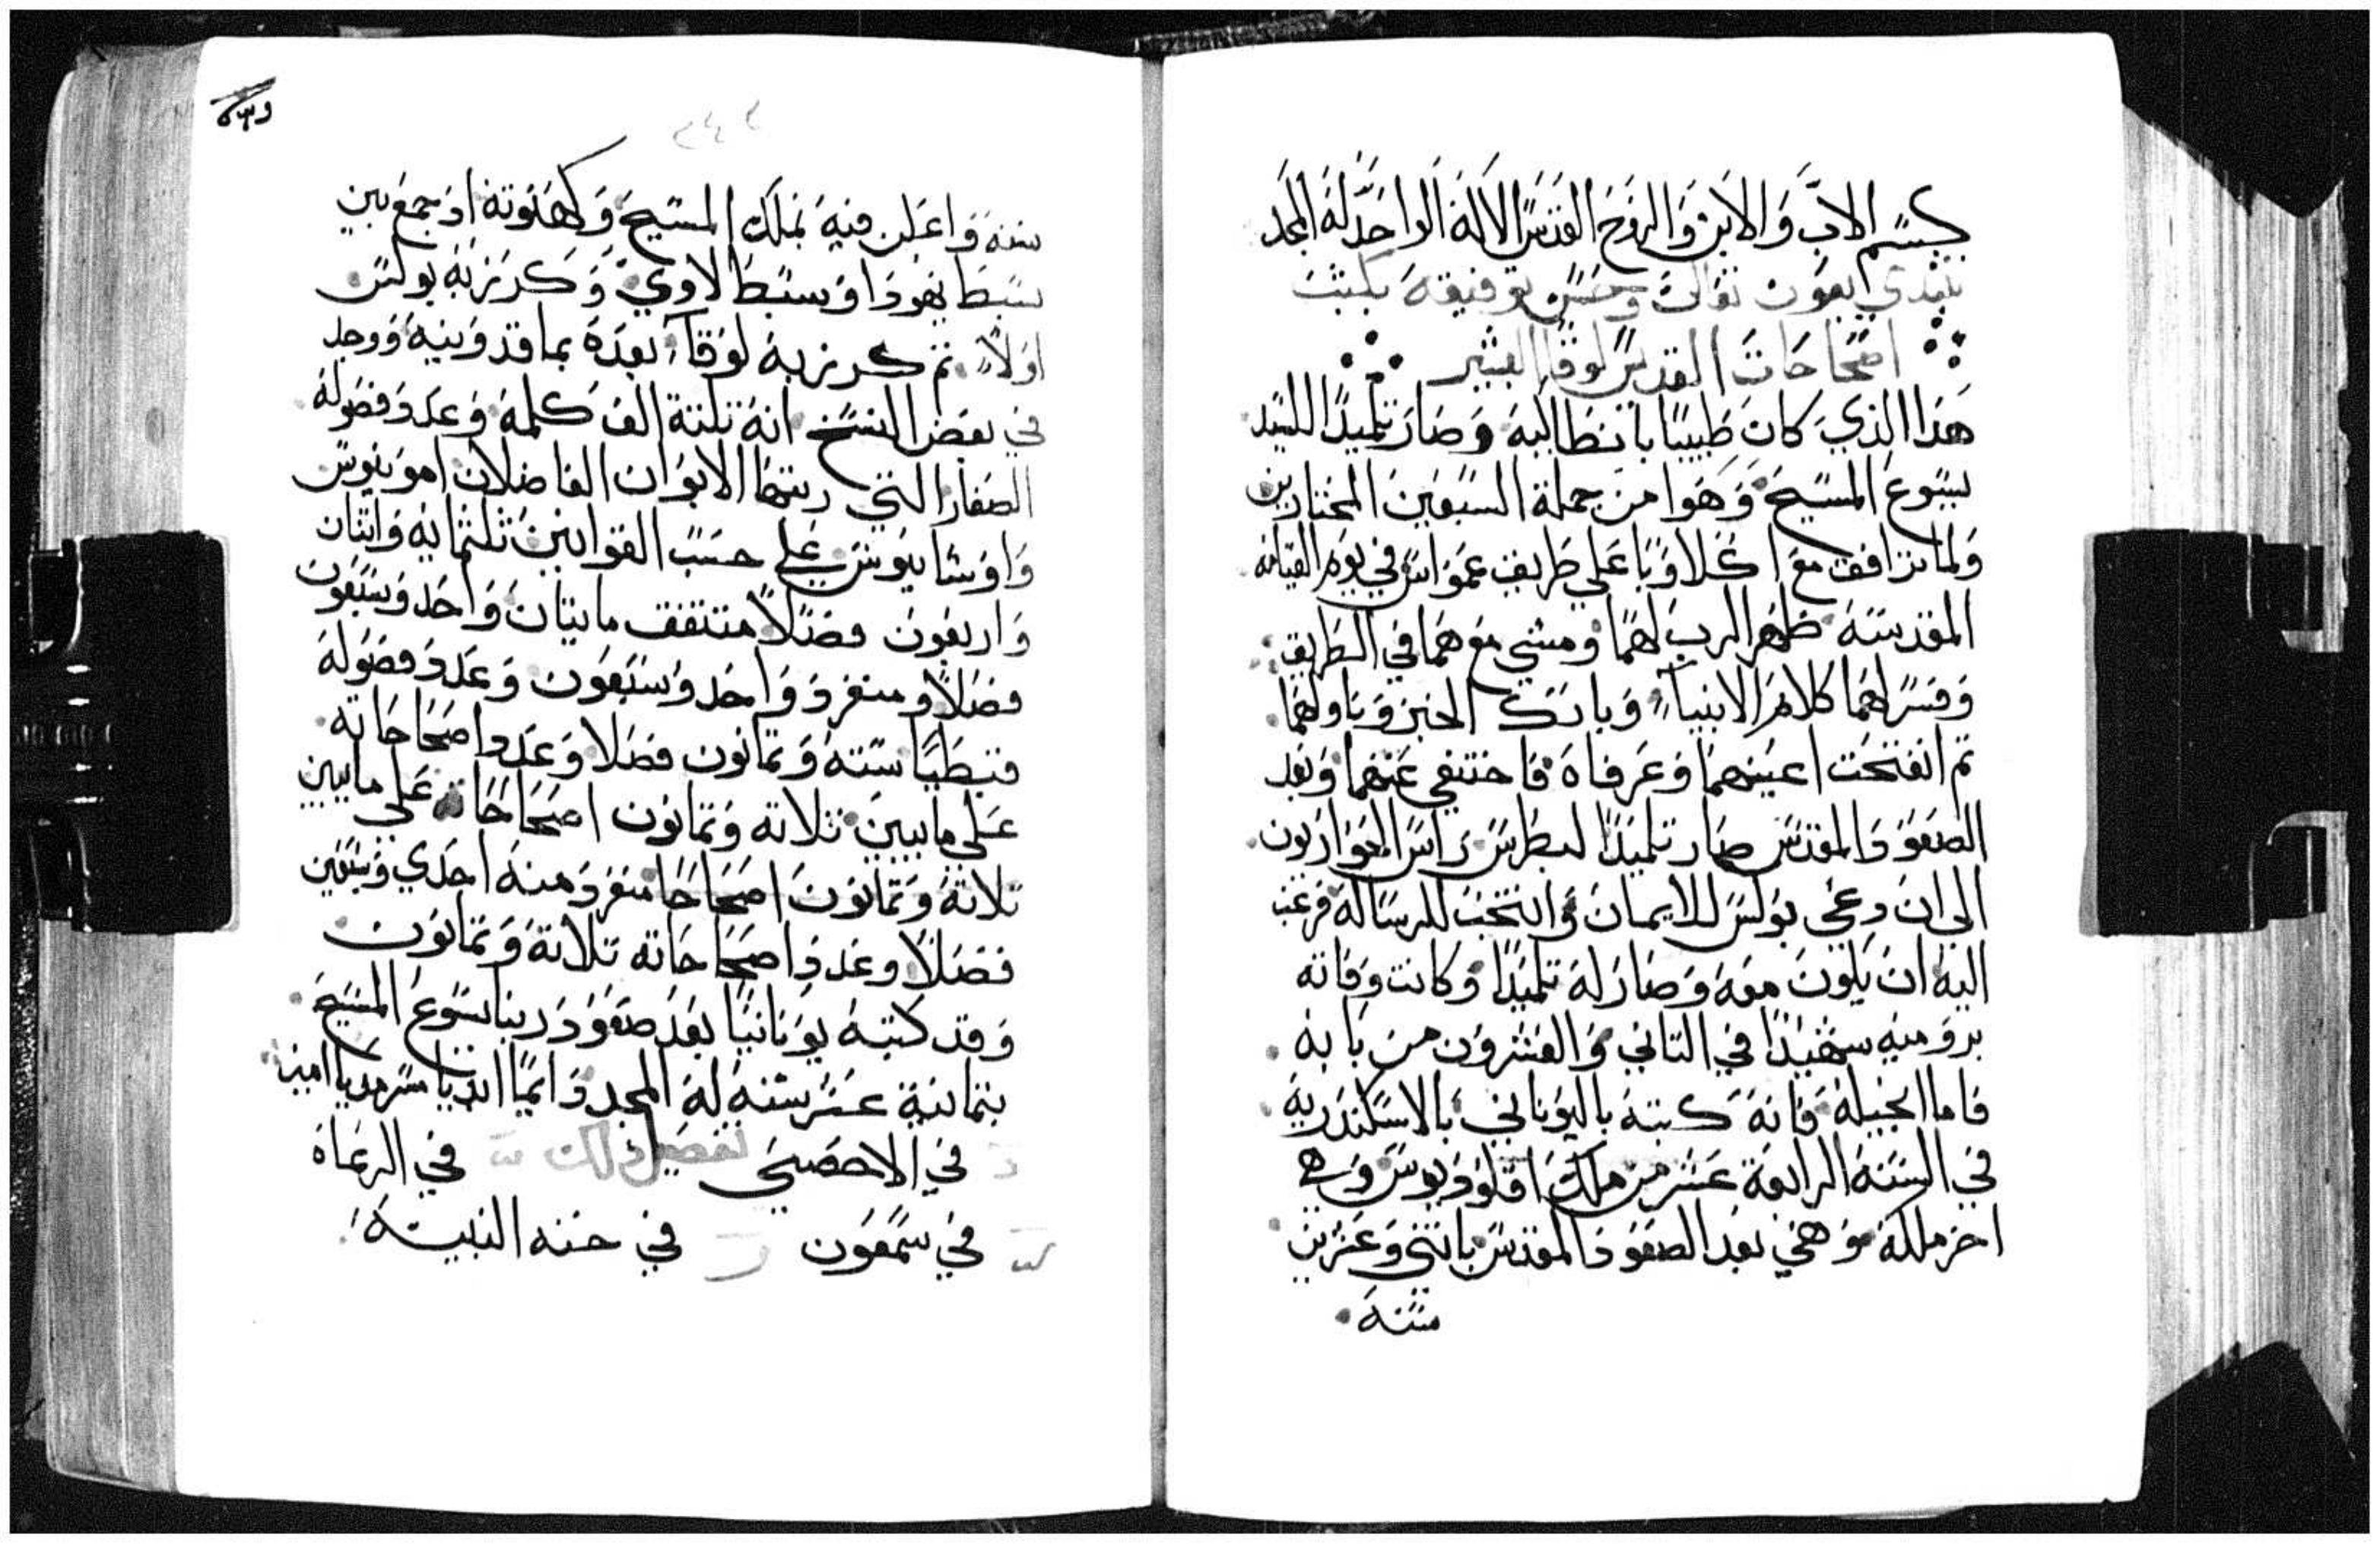 بسم الاب والابن والروح القدس الاله الواحد له المجد
نبتدي بعون تعالى وحسن توفيقه بكتب
اصحاحات القديس لوقا البشير
هذا الذي كان طبيبا بانطاكيه وصار تلميدا للسيد
يسوع المسيح وهوا من جملة السبعين المختارين
ولما ترافق مع اكلاوبا على طريق عمواس في يوم القيامه
المقدسه ظهر الرب لهما ومشي معهما في الطريق
وفسر لهما كلام الانبياء وبارك الخبز وناولهما
تم انفتحت اعينهما وعرفاه فاختفي عنهما وبعد
الصعود المقدس صار تلميدا لبطرس راس الحواريون
الي ان دعي بولس للايمان وانتخب للرساله فرغب
اليه ان يكون معه وصار له تلميدا وكانت وفاته
بروميه شهيدا في التاني والعشرون من بابه
فاما انجيله فانه كتبه باليوناني بالاسكندريه
في السنه الرابعة عشر من ملك اقلوديوس وهي
اخر ملكه وهي بعد الصعود المقدس باتني وعشرين
سنه
٢٤٢
سنه واعلن فيه بملك المسيح وكهنوته اد جمع بين
سبط يهودا وسبط لاوي وكرز به بولس
اولاً تم كرز به لوقا بعده بماقدونيه ووجد
في بعض النسخ انه تلتة الف كلمه وعدد فصوله
الصغار التي رتبها الابوان الفاضلان امونيوس
واوسابيوس علي حسب القوانين تلتمايه واتنان
واربعون فصلاً متتفق مايتان واحد وسبعون
فصلاً ومنفرد واحد وسبعون وعدد فصوله
قبطيا سته وتمانون فصلا وعدد اصحاحاته
علي ما يبين تلاته وتمانون اصحاحاته علي ما يبين
تلاته وتمانون اصحاحا منفرد منه احدي وسبعين
فصلا وعدد اصحاحاته تلاتة وتمانون
وقد كتبه يونانيا بعد صعود ربنا يسوع المسيح
بتمانية عشر سنه له المجد دايما ابديا سرمديا امين
في الاحصي تفصيل دلك في الرعاة
في سمعون في حنه النبيه